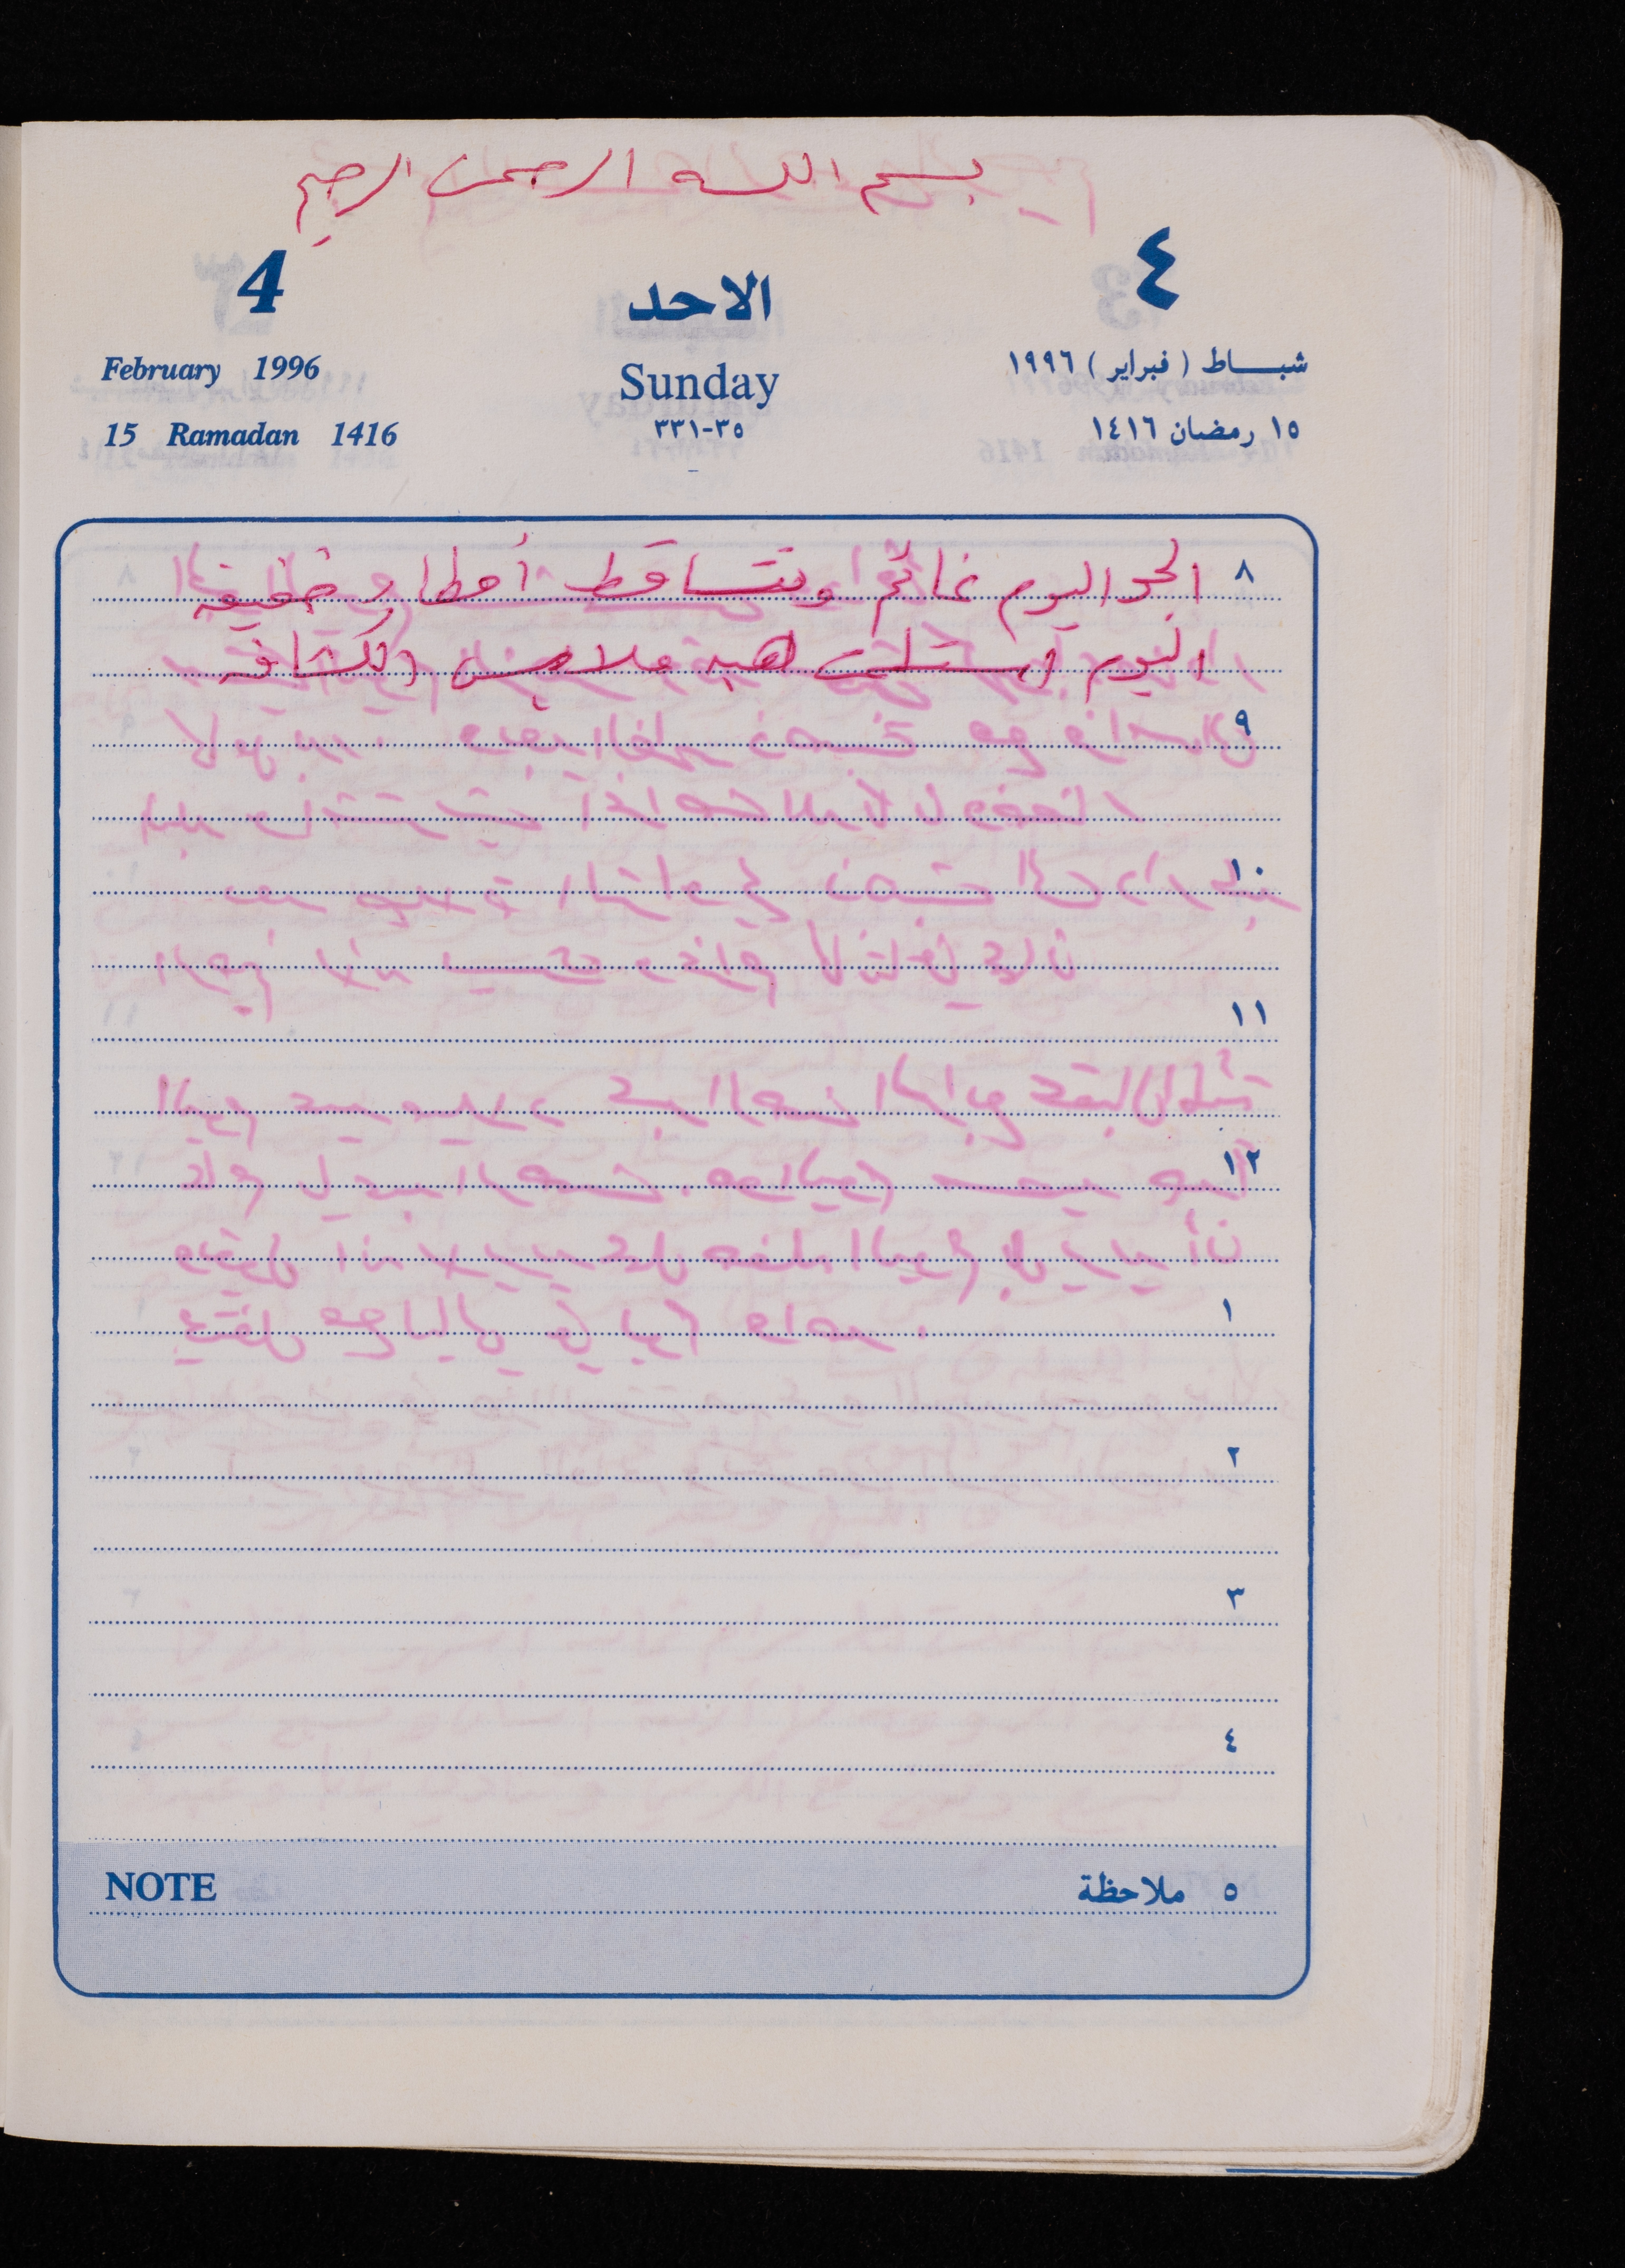 بسم اللـه الرحمن الرحيم
4 الاحد ٤
February 1996 Sunday شبـــاط ( فبراير ) ١٩٩٦
15 Ramadan 1416 ٣٥-٣٣١ ١٥ رمضان ١٤١٦
٨ الجو اليوم غائم وتتساقط أمطار خفيفه
اليوم استلمت هبه ملابس الكشافه
٩
١٠
١١
١٢
١
٢
٣
٤
NOTE ٥ ملاحظة